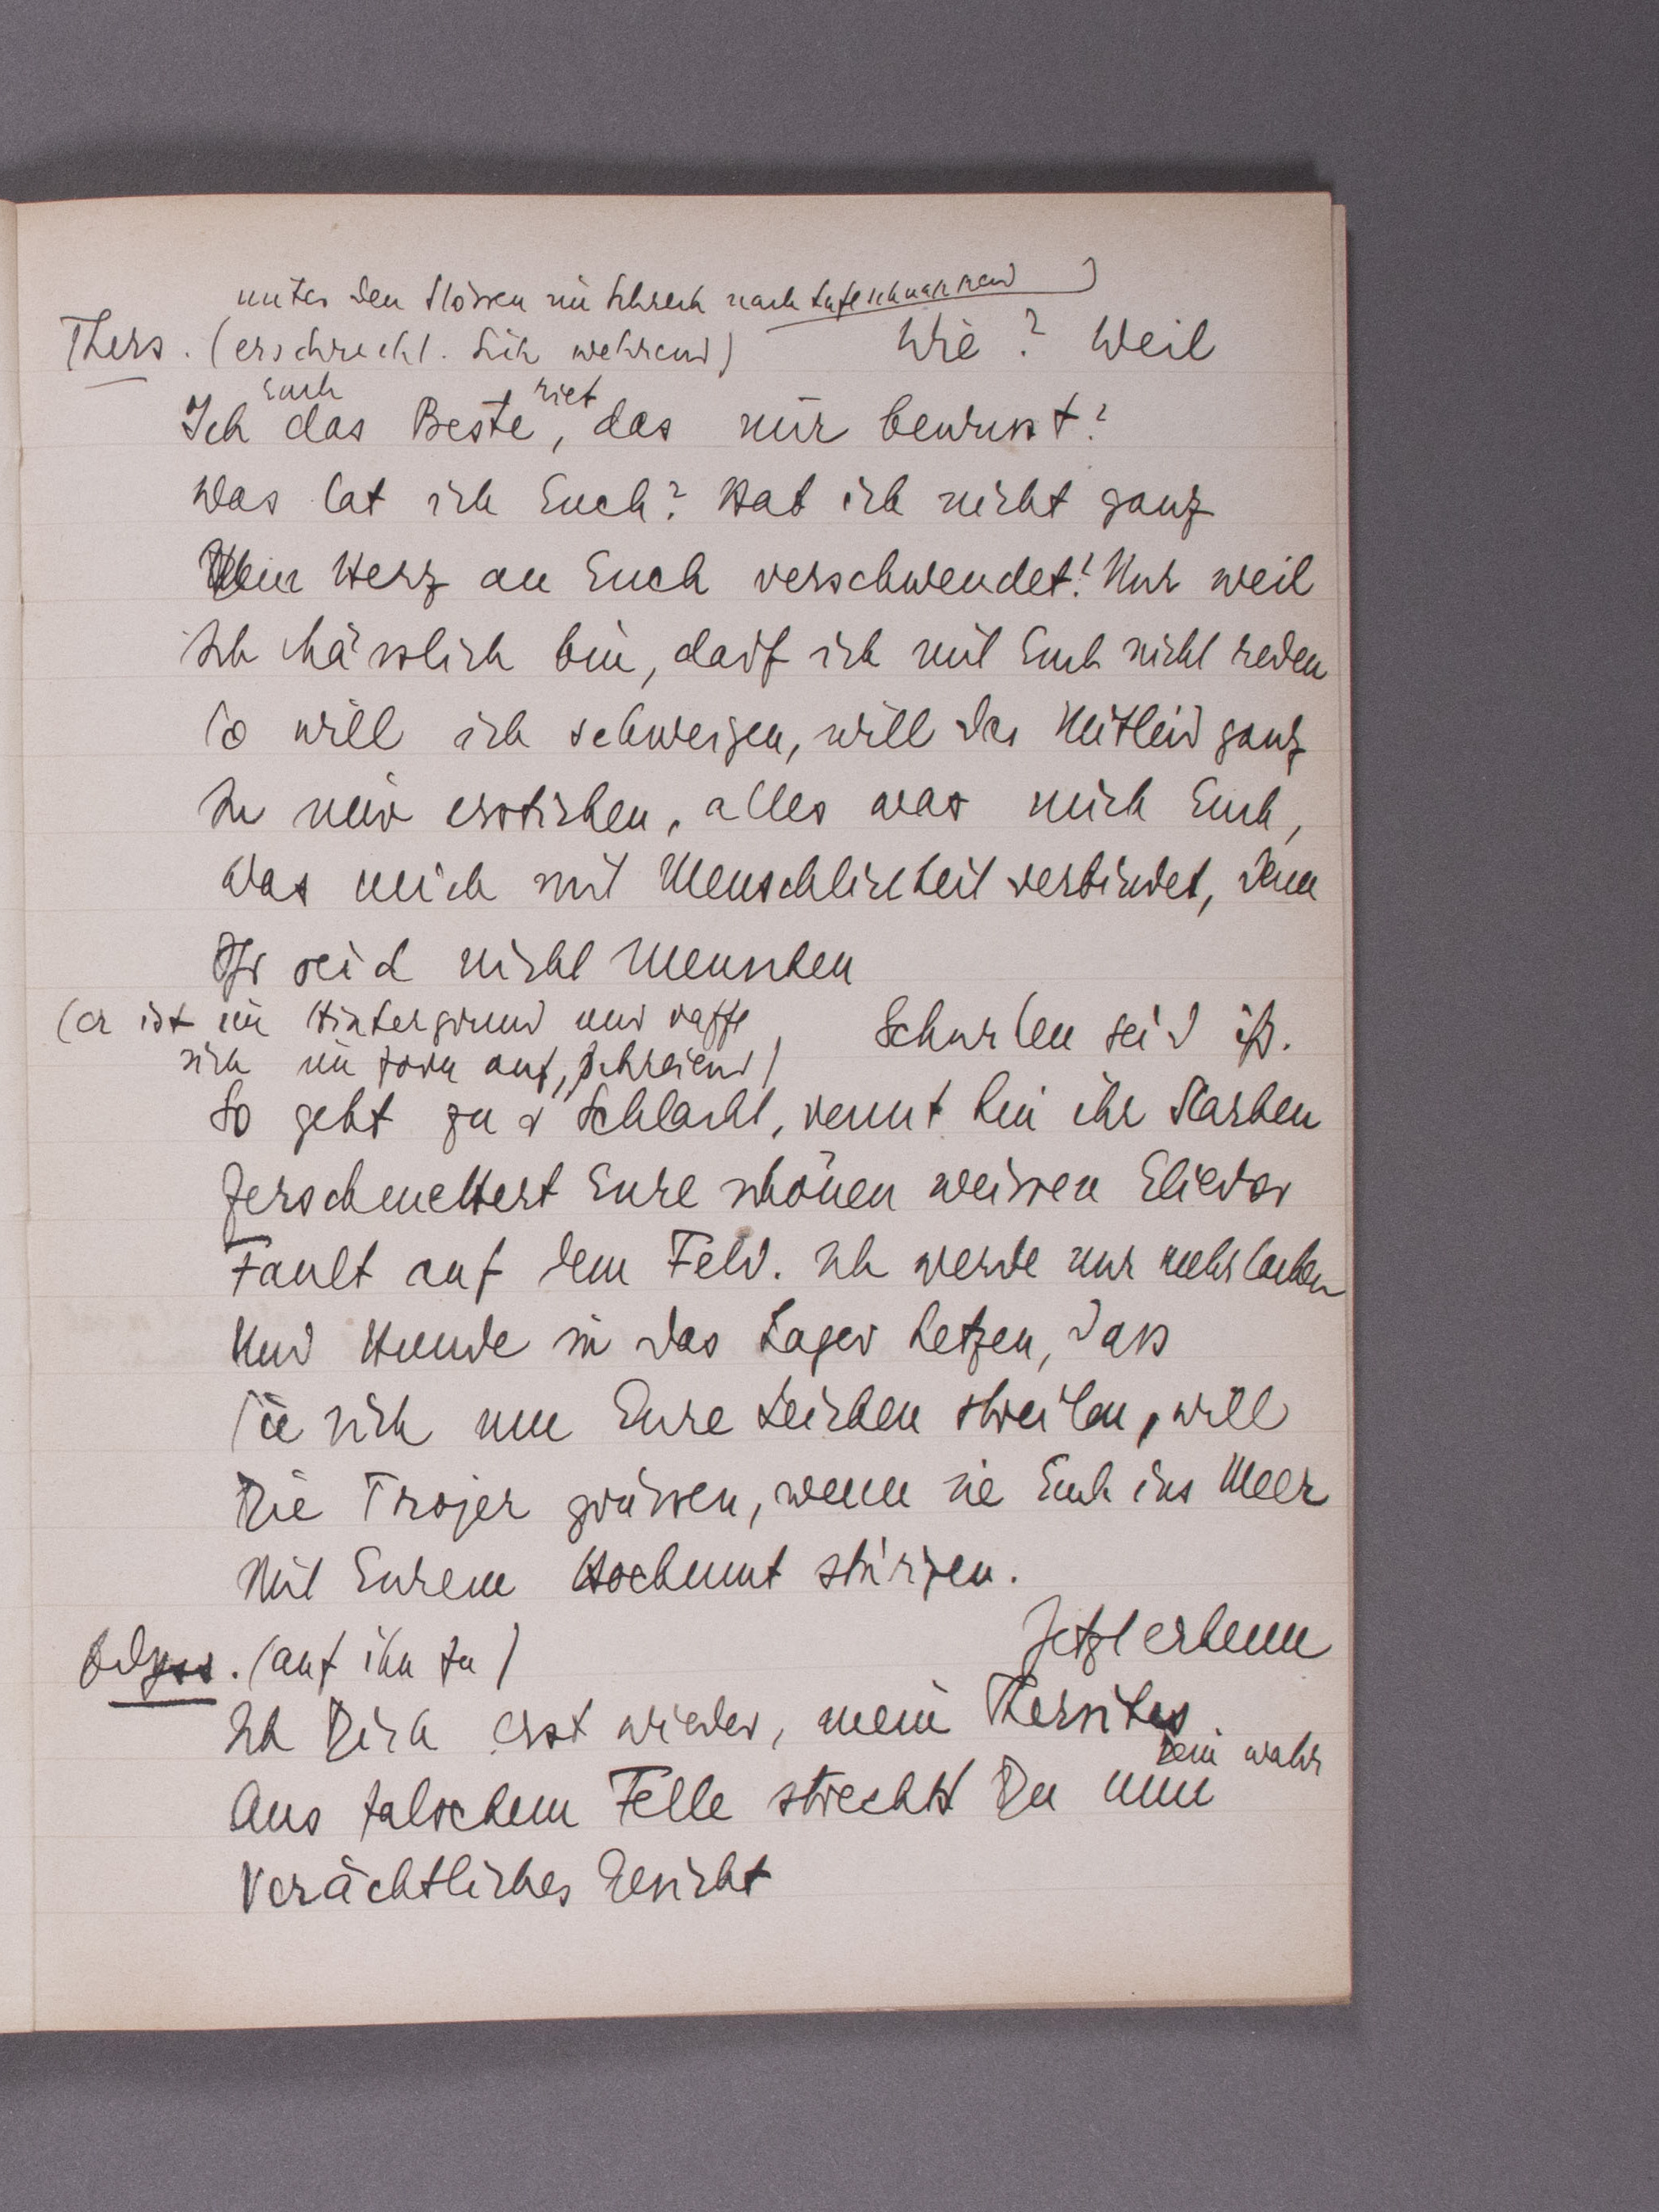 unter den Stössen im Schreck nach Luft schnappend)
Thers. (erschreckt. Sich wehrend) Wie? Weil
Ich Euch das Beste riet, das mir bewusst?
Was tat ich Euch? Hab ich nicht ganz
Mein Herz an Euch verschwendet! Nur weil
Ich hässlich bin, darf ich mit Euch nicht reden
So will ich schweigen, will das Mitleid ganz
In mir ersticken, alles was mich Euch,
Was mich mit Menschlichkeit verbindet, denn
Ihr seid nicht Menschen
(er ist im Hintergrund und rafft Schurken seid ihr.
sich im Zorn auf, schreiend)
So geht zur Schlacht, rennt hin ihr Starken
Zerschmettert Eure schönen weissen Glieder
Fault auf dem Feld. Ich werde nur mehr lachen
Und Hunde in das Lager hetzen, dass
Sie sich um Eure Leichen streiten, will
Die Trojer grüssen, wenn sie Euch ins Meer
Mit Eurem Hochmut stürzen.
Odyss. (auf ihn zu) Jetzt erkenn
Ich Dich erst wieder, mein Thersites.
Aus falschem Felle streckst Du nun dein wahr
Verächtliches Gesicht